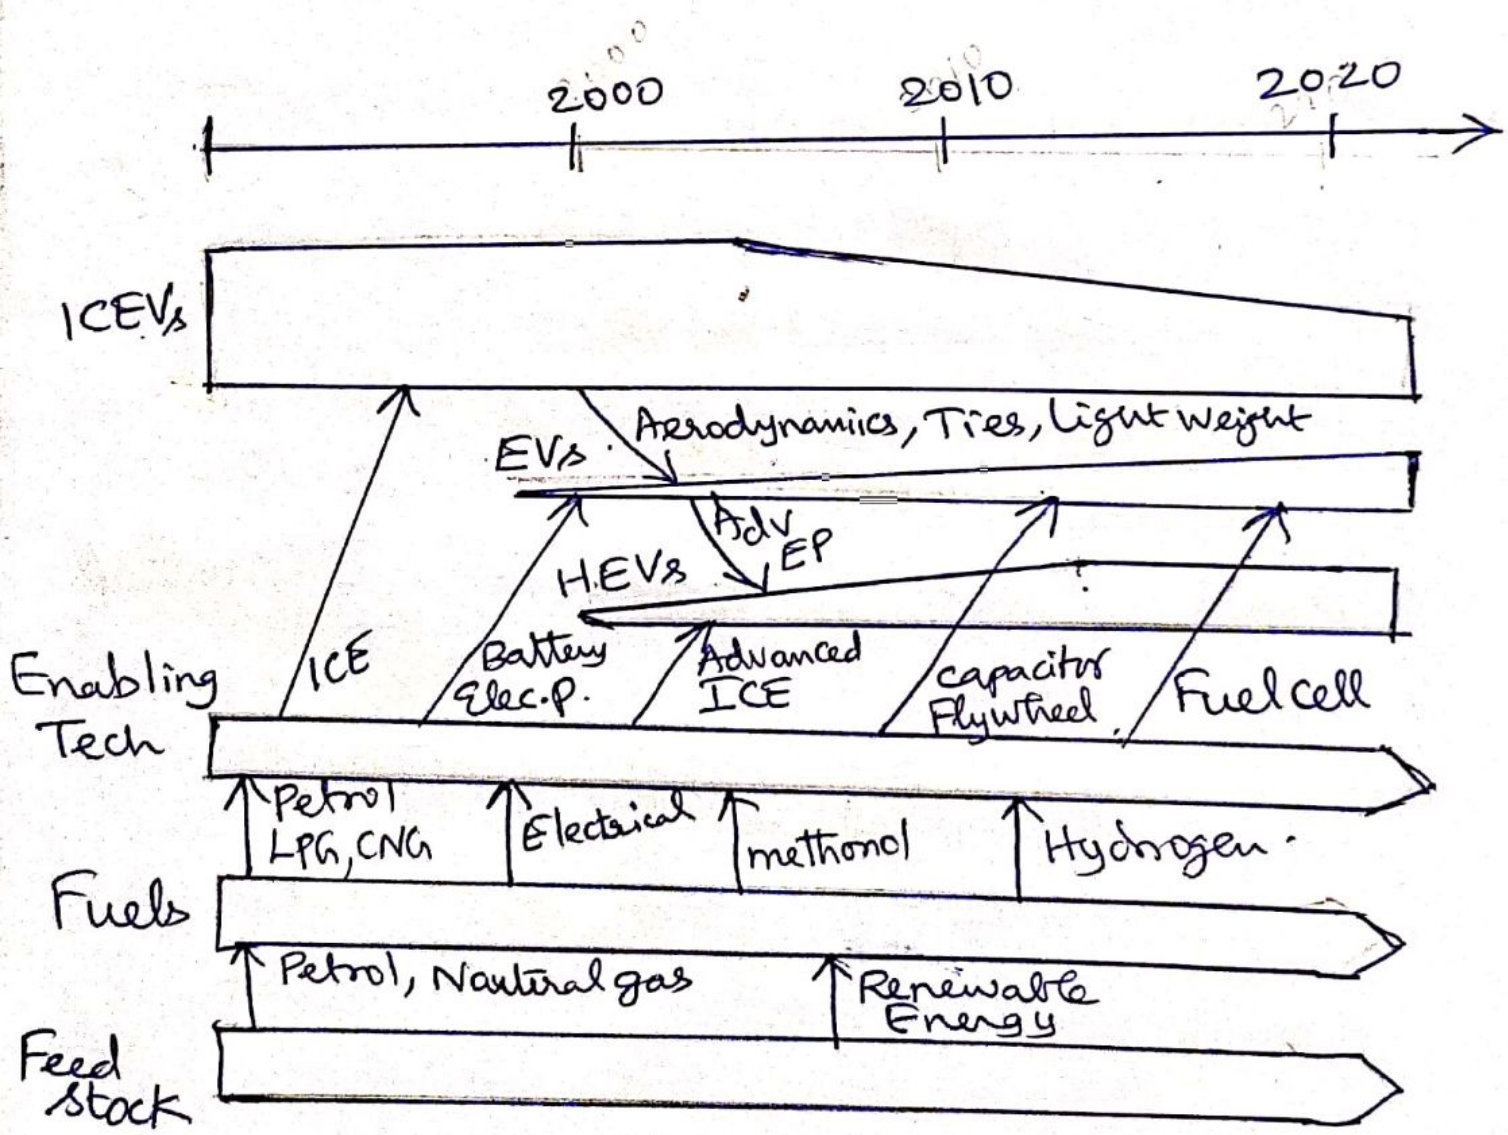 2000 2010 2020
ICEVs
Aerodynamiics, Ties, light weight
EVs
Adv
EP
H.EVs
ICE
Battery
Elec.p.
Advanced
ICE
capacitor
Flywheel
Fuel cell
Enabling
Tech
Petrol
LPG, CNG
Electrical
methonol
Hydrogen
Fuels
Petrol, Nautural gas
Renewable
Energy
Feed
stock